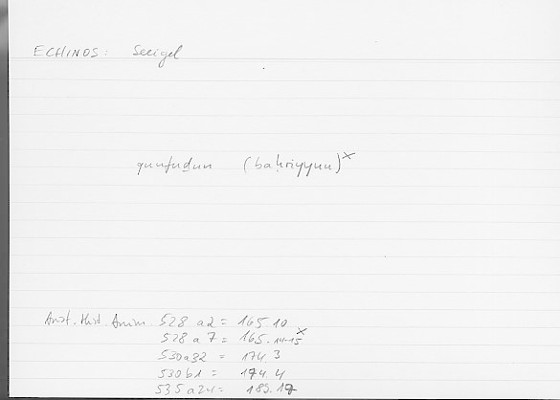 ECHINOS: Seeigel
qunfuḏun (baḥriyyun)ˣ
Arist. Hist. Anim. 528 a2 = 165.10
528 a 7 = 165.14-15ˣ
530a32 = 174 3
530b1 = 174.4
535 a24 = 189.17